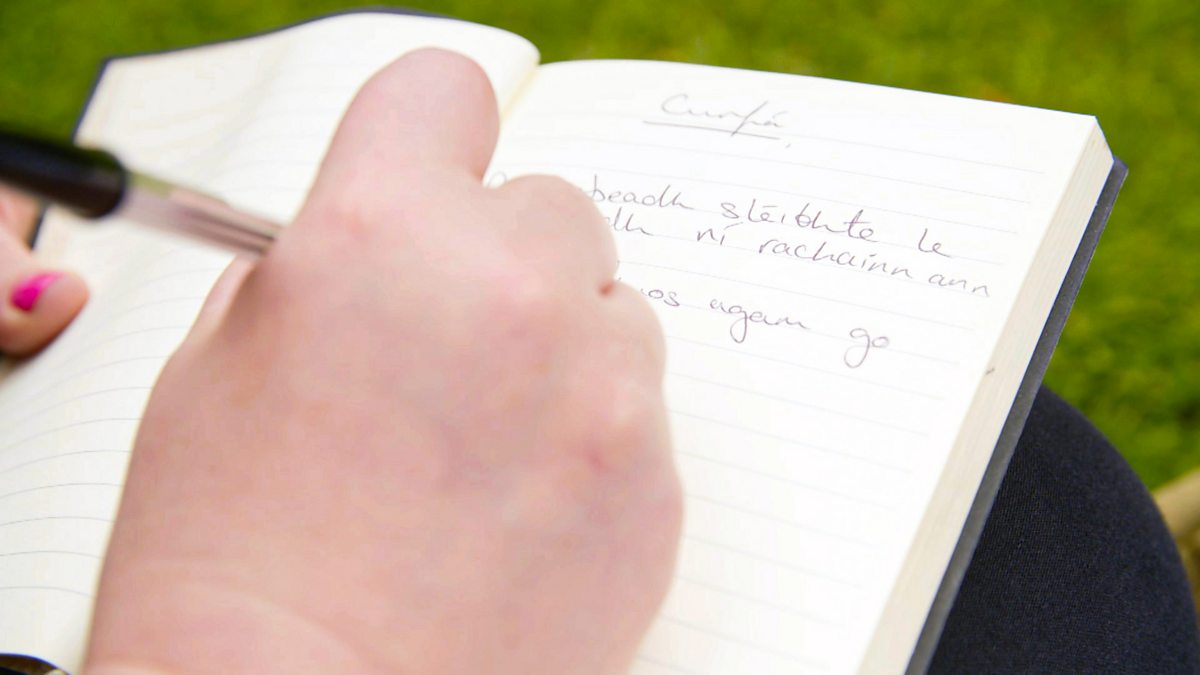 Curfá
beadh sléibhte le
ní rachainn ann
agam go